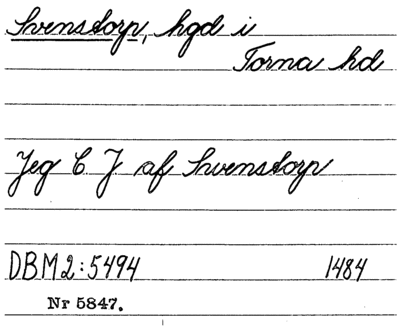 Svenstorp, hgd i
Torna hd
Jeg C J af Swenstorp
DBM2:5494 1484
Nr 5847.